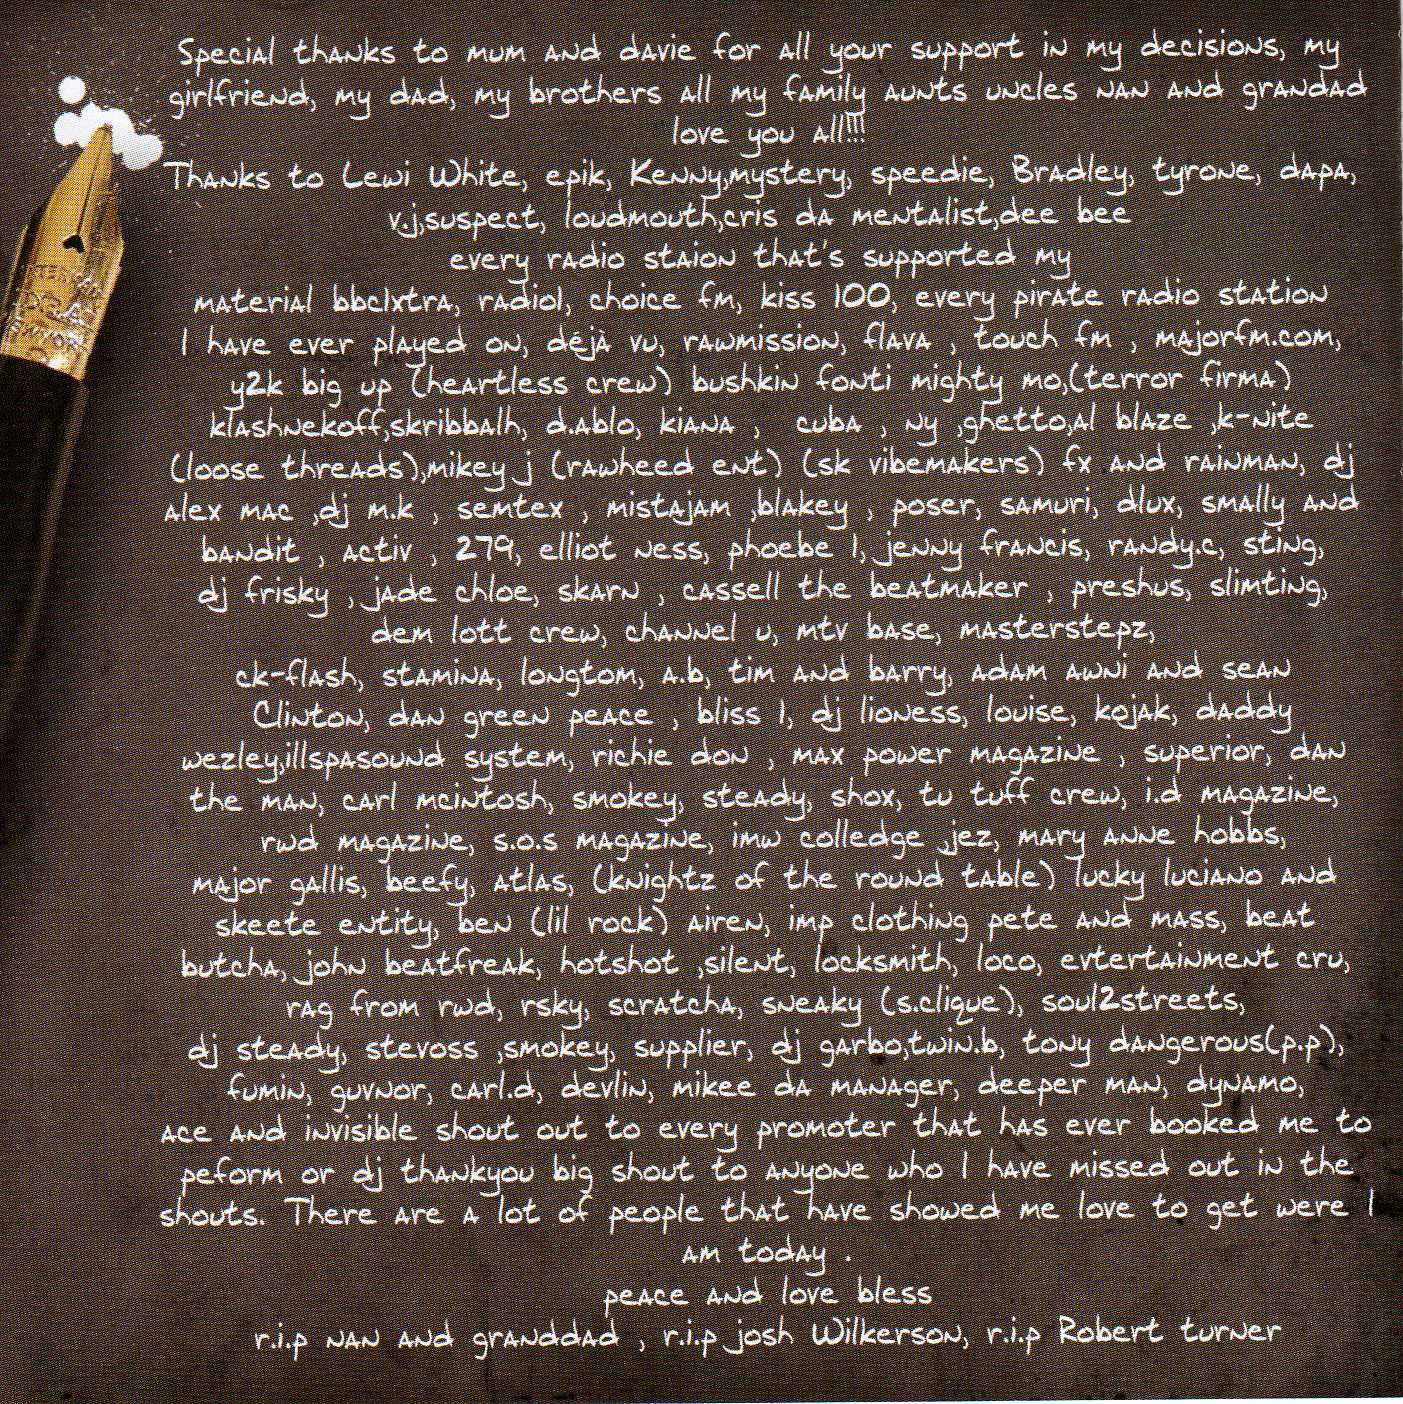 Special thanks to mum and davie for all your support in my decisions, my
girlfriend, my dad, my brothers all my family aunts uncles nan and grandad
love you all!!!
Thanks to Lewi White, epik, Kenny,mystery, speedie, Bradley, tyrone, dapa,
v.j,suspect, loudmouth,cris da mentalist,dee bee
every radio staion that's supported my
material bbc1xtra, radio1, choice fm, kiss 100, every pirate radio station
I have ever played on, déjà vu, rawmission, flava , touch fm , majorfm.com,
y2k big up (heartless crew) bushkin fonti mighty mo,(terror firma)
klashnekoff,skribbalh, d.ablo, kiana , cuba , ny ,ghetto,al blaze ,k-nite
(loose threads),mikey j (rawheed ent) (sk vibemakers) fx and rainman, dj
alex mac ,dj m.k , semtex , mistajam ,blakey , poser, samuri, dlux, smally and
bandit , activ , 279, elliot ness, phoebe 1, jenny francis, randy.c, sting,
dj frisky , jade chloe, skarn , cassell the beatmaker , preshus, slimting,
dem lott crew, channel u, mtv base, masterstepz,
ck-flash, stamina, longtom, a.b, tim and barry, adam awni and sean
Clinton, dan green peace , bliss 1, dj lioness, louise, kojak, daddy
wezley,illspasound system, richie don , max power magazine , superior, dan
the man, carl mcintosh, smokey, steady, shox, tu tuff crew, i.d magazine,
rwd magazine, s.o.s magazine, imw colledge ,jez, mary anne hobbs,
major gallis, beefy, atlas, (knightz of the round table) lucky luciano and
skeete entity, ben (lil rock) airen, imp clothing pete and mass, beat
butcha, john beatfreak, hotshot ,silent, locksmith, loco, evtertainment cru,
rag from rwd, rsky, scratcha, sneaky (s.clique), soul2streets,
dj steady, stevoss ,smokey, supplier, dj garbo,twin.b, tony dangerous(p.p),
fumin, guvnor, carl.d, devlin, mikee da manager, deeper man, dynamo,
ace and invisible shout out to every promoter that has ever booked me to
peform or dj thankyou big shout to anyone who I have missed out in the
shouts. There are a lot of people that have showed me love to get were I
am today .
peace and love bless
r.i.p nan and granddad , r.i.p josh Wilkerson, r.i.p Robert turner